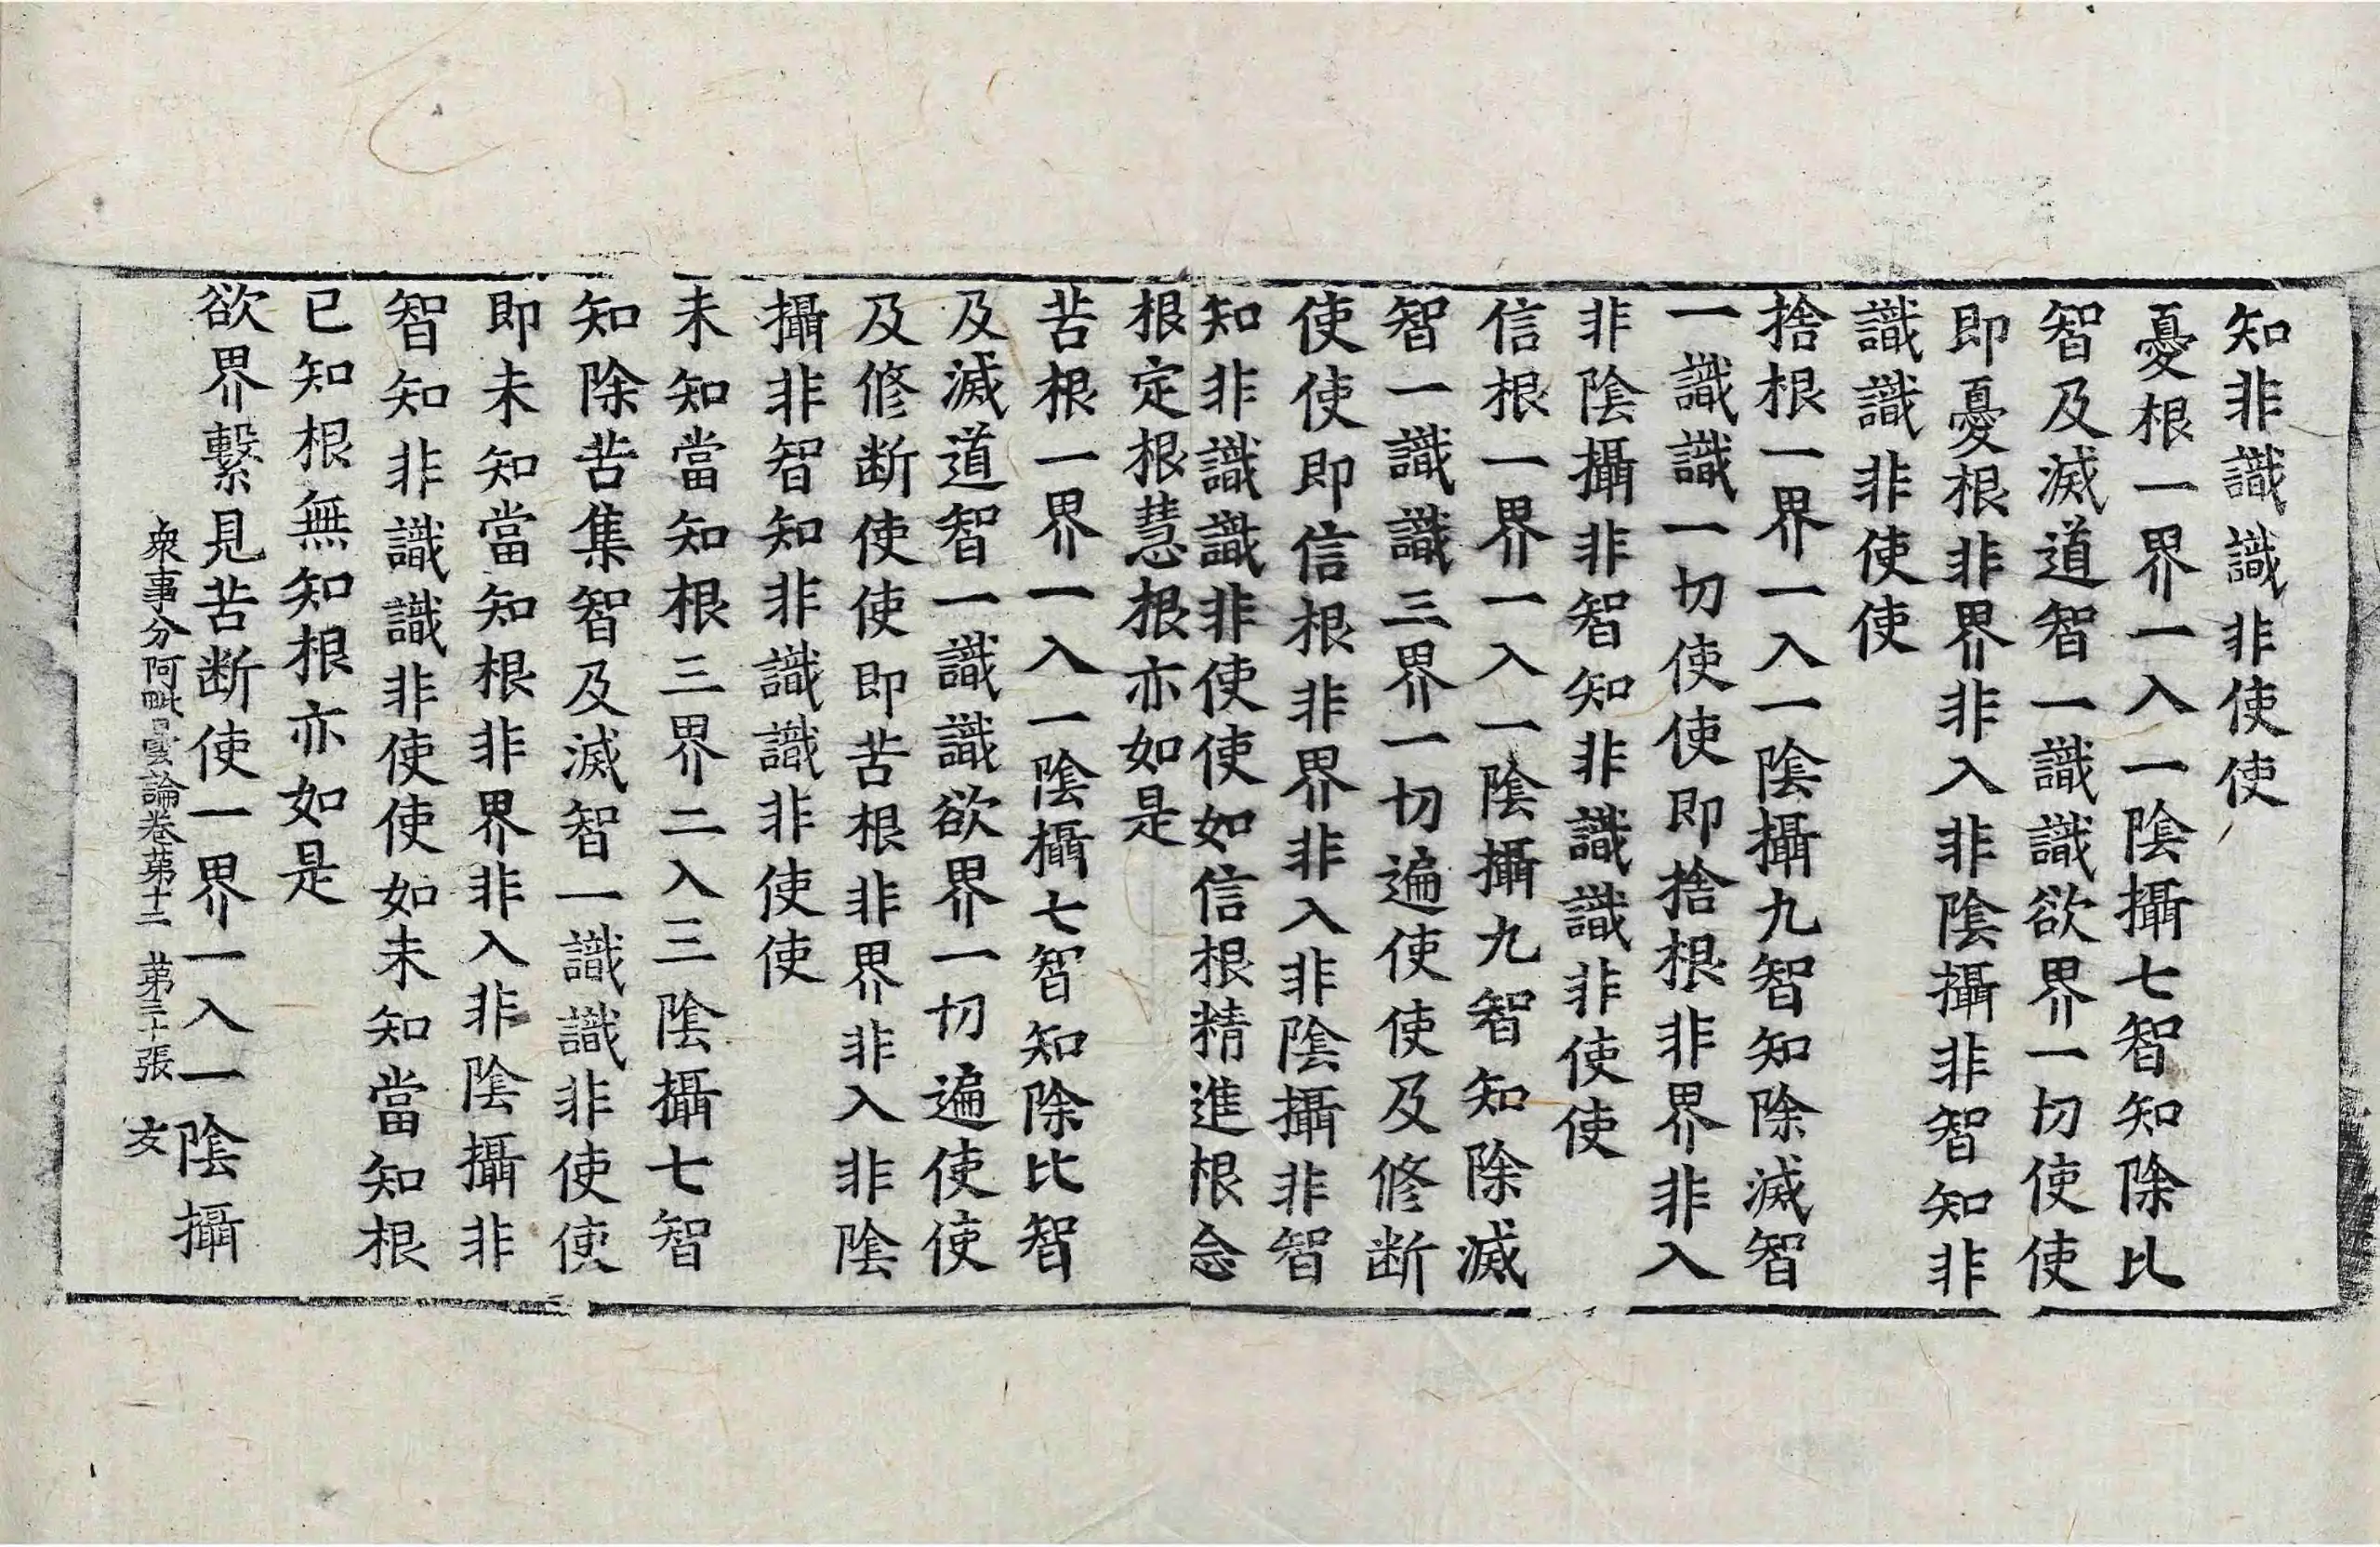 知非識識非使使
憂根一界一入一陰攝七智知除比
智及滅道智一識識欲界一切使使
即憂根非界非入非陰攝非智知非
識識非使使
捨根一界一入一陰攝九智知除滅智
一識識一切使使即捨根非界非入
非陰攝非智知非識識非使使
信根一界一入一陰攝九智知除滅
智一識識三界一切遍使使及修断
使使即信根非界非入非陰攝非智
知非識識非使使如信根精進根念
根定根慧根亦如是
苦根一界一入一陰攝七智知除比智
及滅道智一識識欲界一切遍使使
及修断使使即苦根非界非入非陰
攝非智知非識識非使使
未知當知根三界二入三陰攝七智
知除苦集智及滅智一識識非使使
即未知當知根非界非入非陰攝非
智知非識識非使使如未知當知根
已知根無知根亦如是
欲界繫見苦断使一界一入一陰攝
衆事分阿毗曇論卷苐十二 苐三十張 友